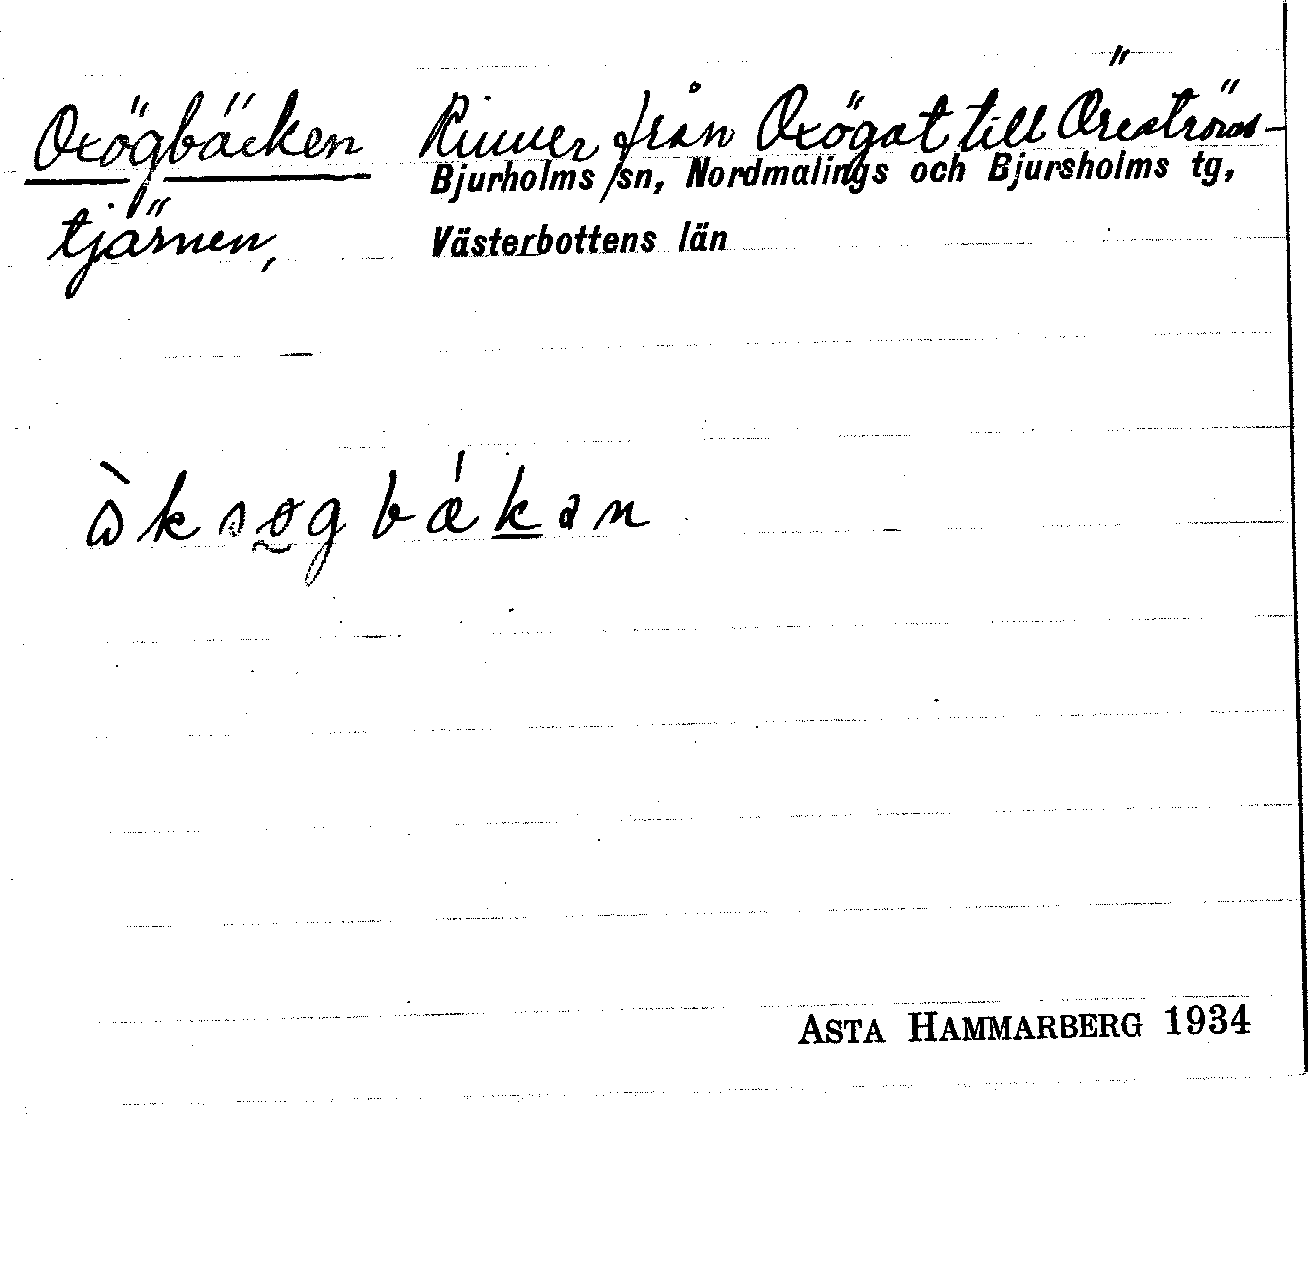 Oxögbäcken Rinner från Oxögat till Öreströms-
tjärnen,
Bjurholms sn, Nordmalings och Bjursholms tg,
Västerbottens län
ASTA HAMMARBERG 1934